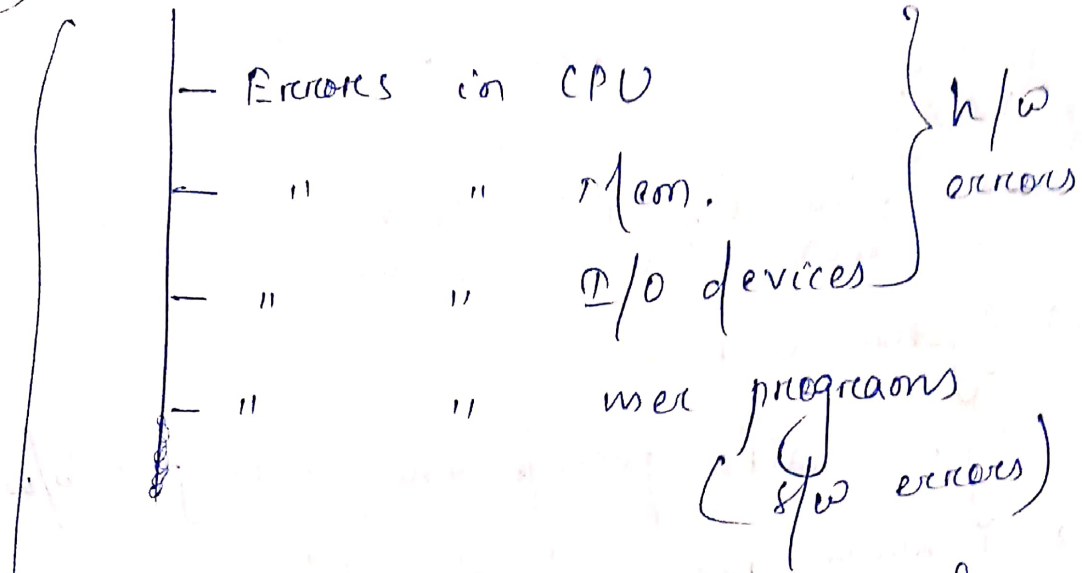 Errors in CPU
" " Mem.
" " I/O devices
h/w
errors
" " user programs
(s/w errors)